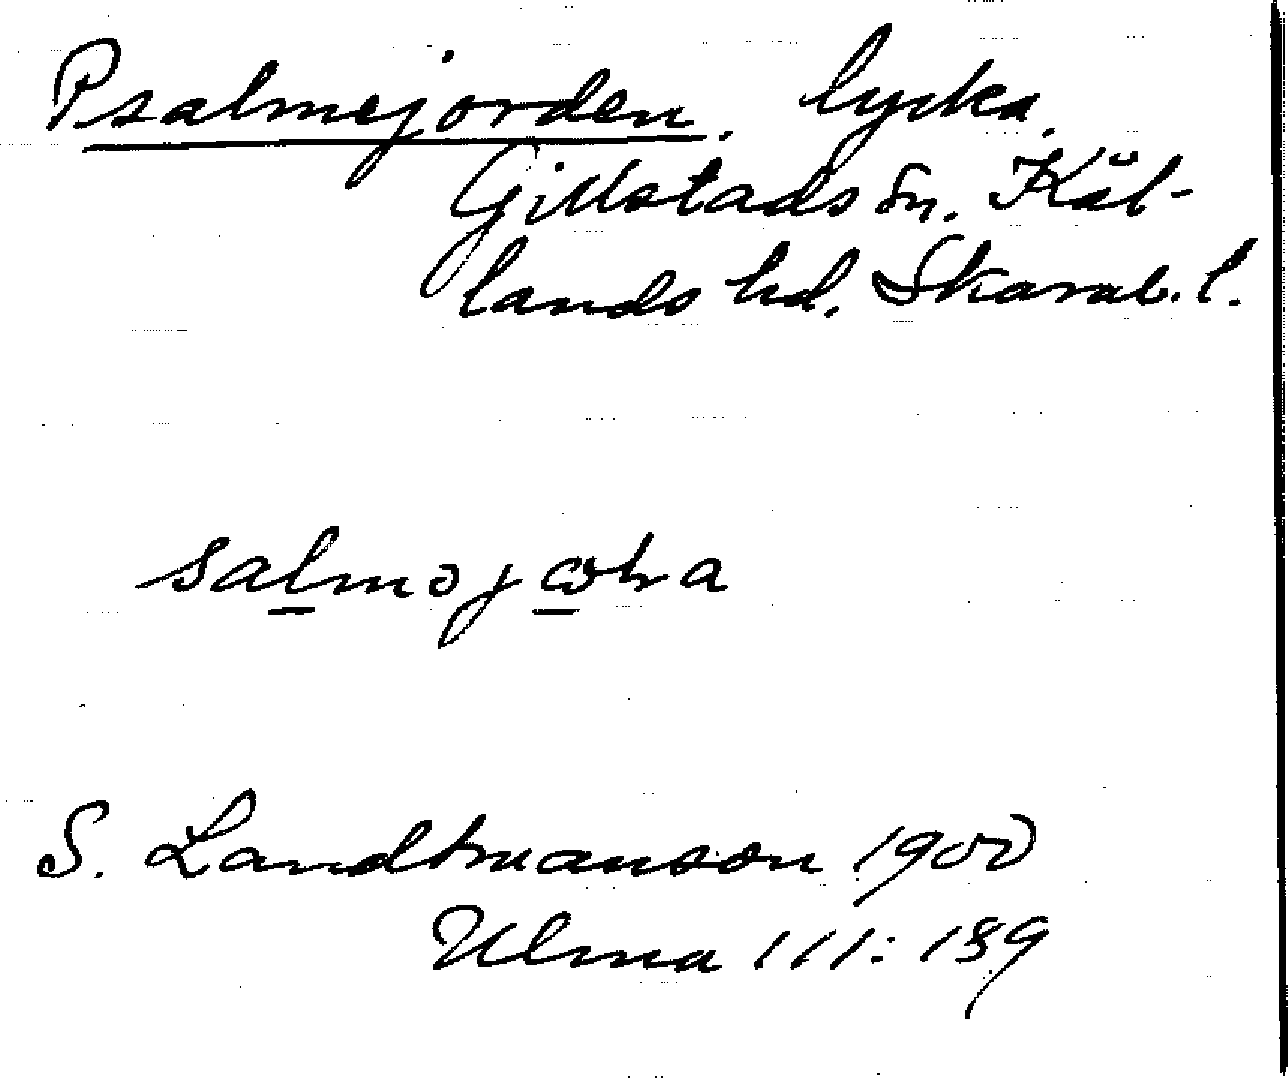 Psalmejorden. lycka.
Gillstads sn. Kål-
lands hd. Skarab. l.
S. Landtmanson 1900
Ulma 111:189